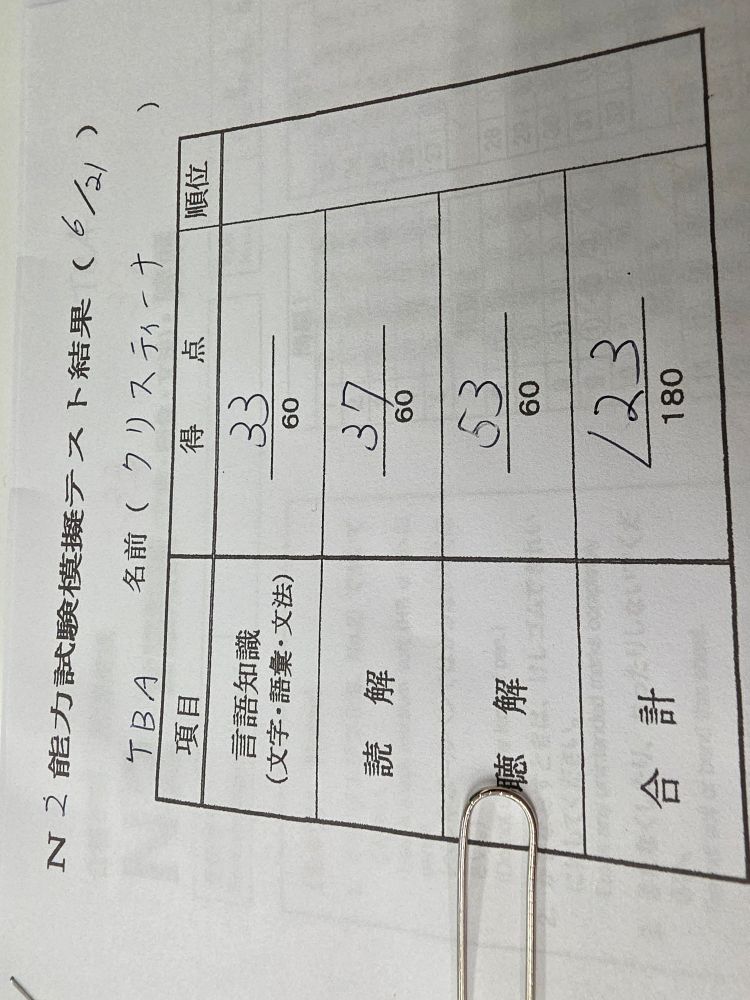 N2能力試験模擬テスト結果(6/21)
TBA 名前(クリスティーナ)
項目 得点 順位
言語知識 33
(文字・語彙・文法) 60
読解 37
60
聴解 53
60
合計 123
180